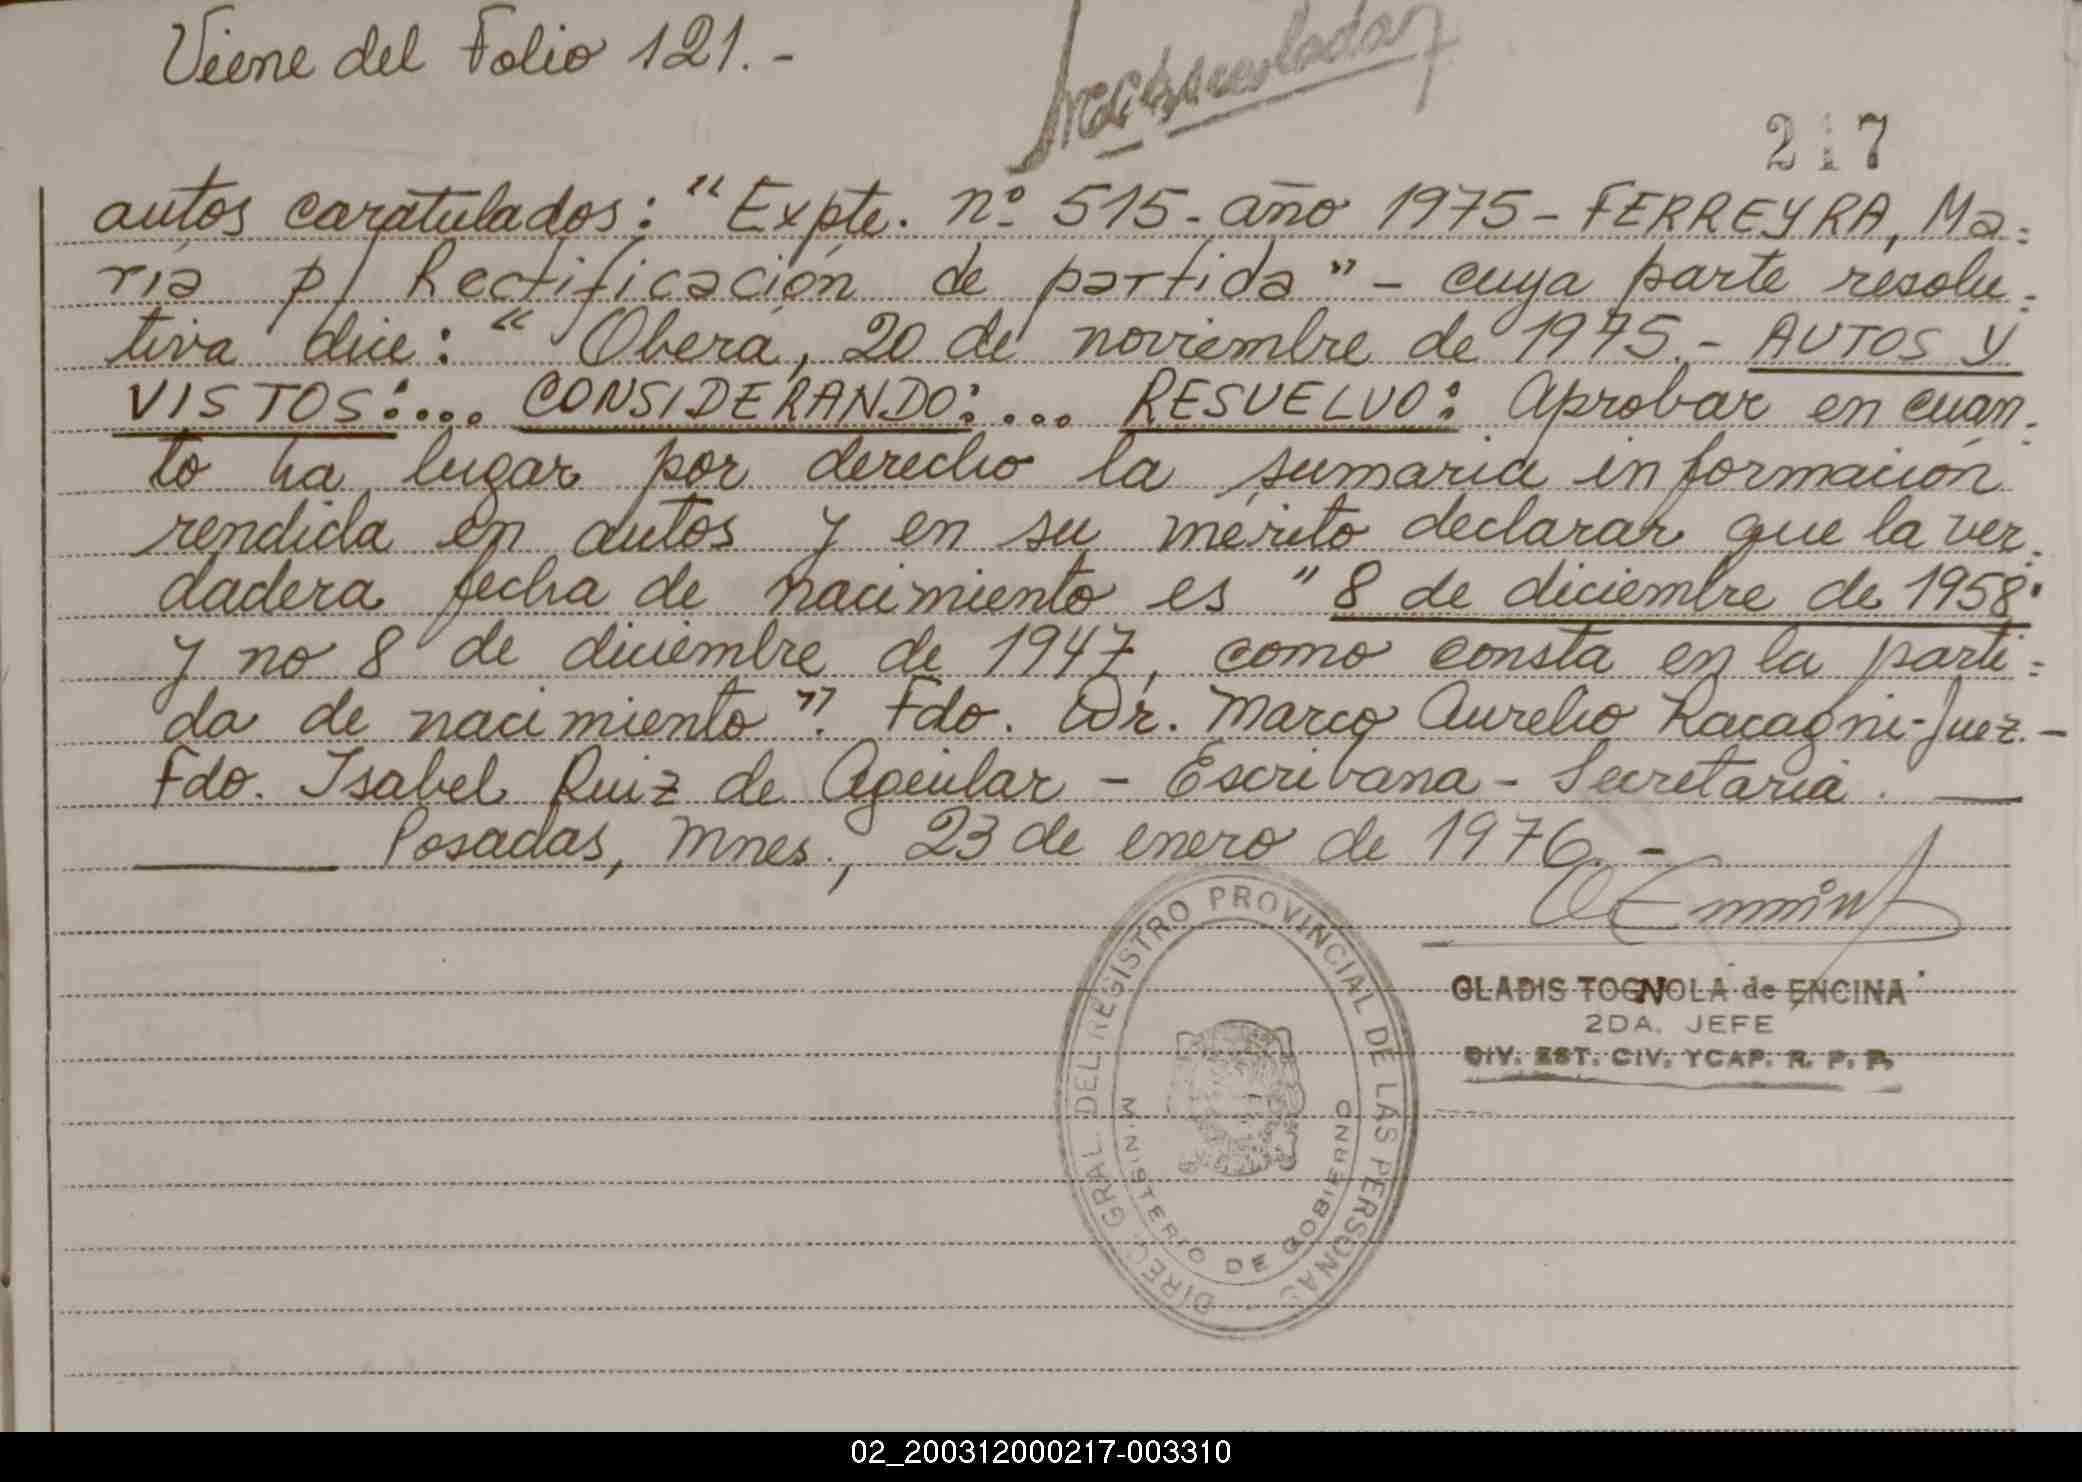 Viene del Folio 121.-
217
autos caratulados: "Expte. nº 515- año 1975- FERREYRA, Ma=
ría p/ Rectificación de partida" - cuya parte resolu=
tiva dice: "Oberá, 20 de noviembre de 1975.- AUTOS Y
VISTOS:... CONSIDERANDO:... RESUELVO: Aprobar en cuan=
to ha lugar por derecho la sumaria información
rendida en autos y en su mérito declarar que la ver=
dadera fecha de nacimiento es "8 de diciembre de 1958"
y no 8 de diciembre de 1947, como consta en la parti=
da de nacimiento". Fdo. Dr. Marco Aurelio Racagni-Juez.-
Fdo. Isabel Ruiz de Aguilar - Escribana - Secretaria.
Posadas, Mnes., 23 de enero de 1976.-
DIREC. GRAL. DEL REGISTRO PROVINCIAL DE LAS PERSONAS
MINISTERIO DE GOBIERNO
GLADIS TOGNOLA de ENCINA
2DA. JEFE
DIV. EST. CIV. YCAP. R. P. P.
02_200312000217-003310